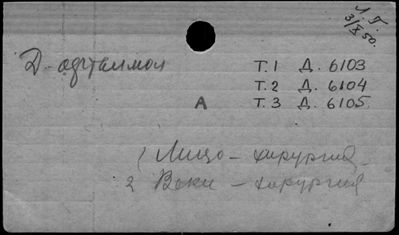 Л. Г.
3/X 50.
Д-офталмол Т.1 Д. 6103
Т.2 Д. 6104
А Т.3 Д. 6105
1 Лицо - хирургия
2 Веки - хирургия